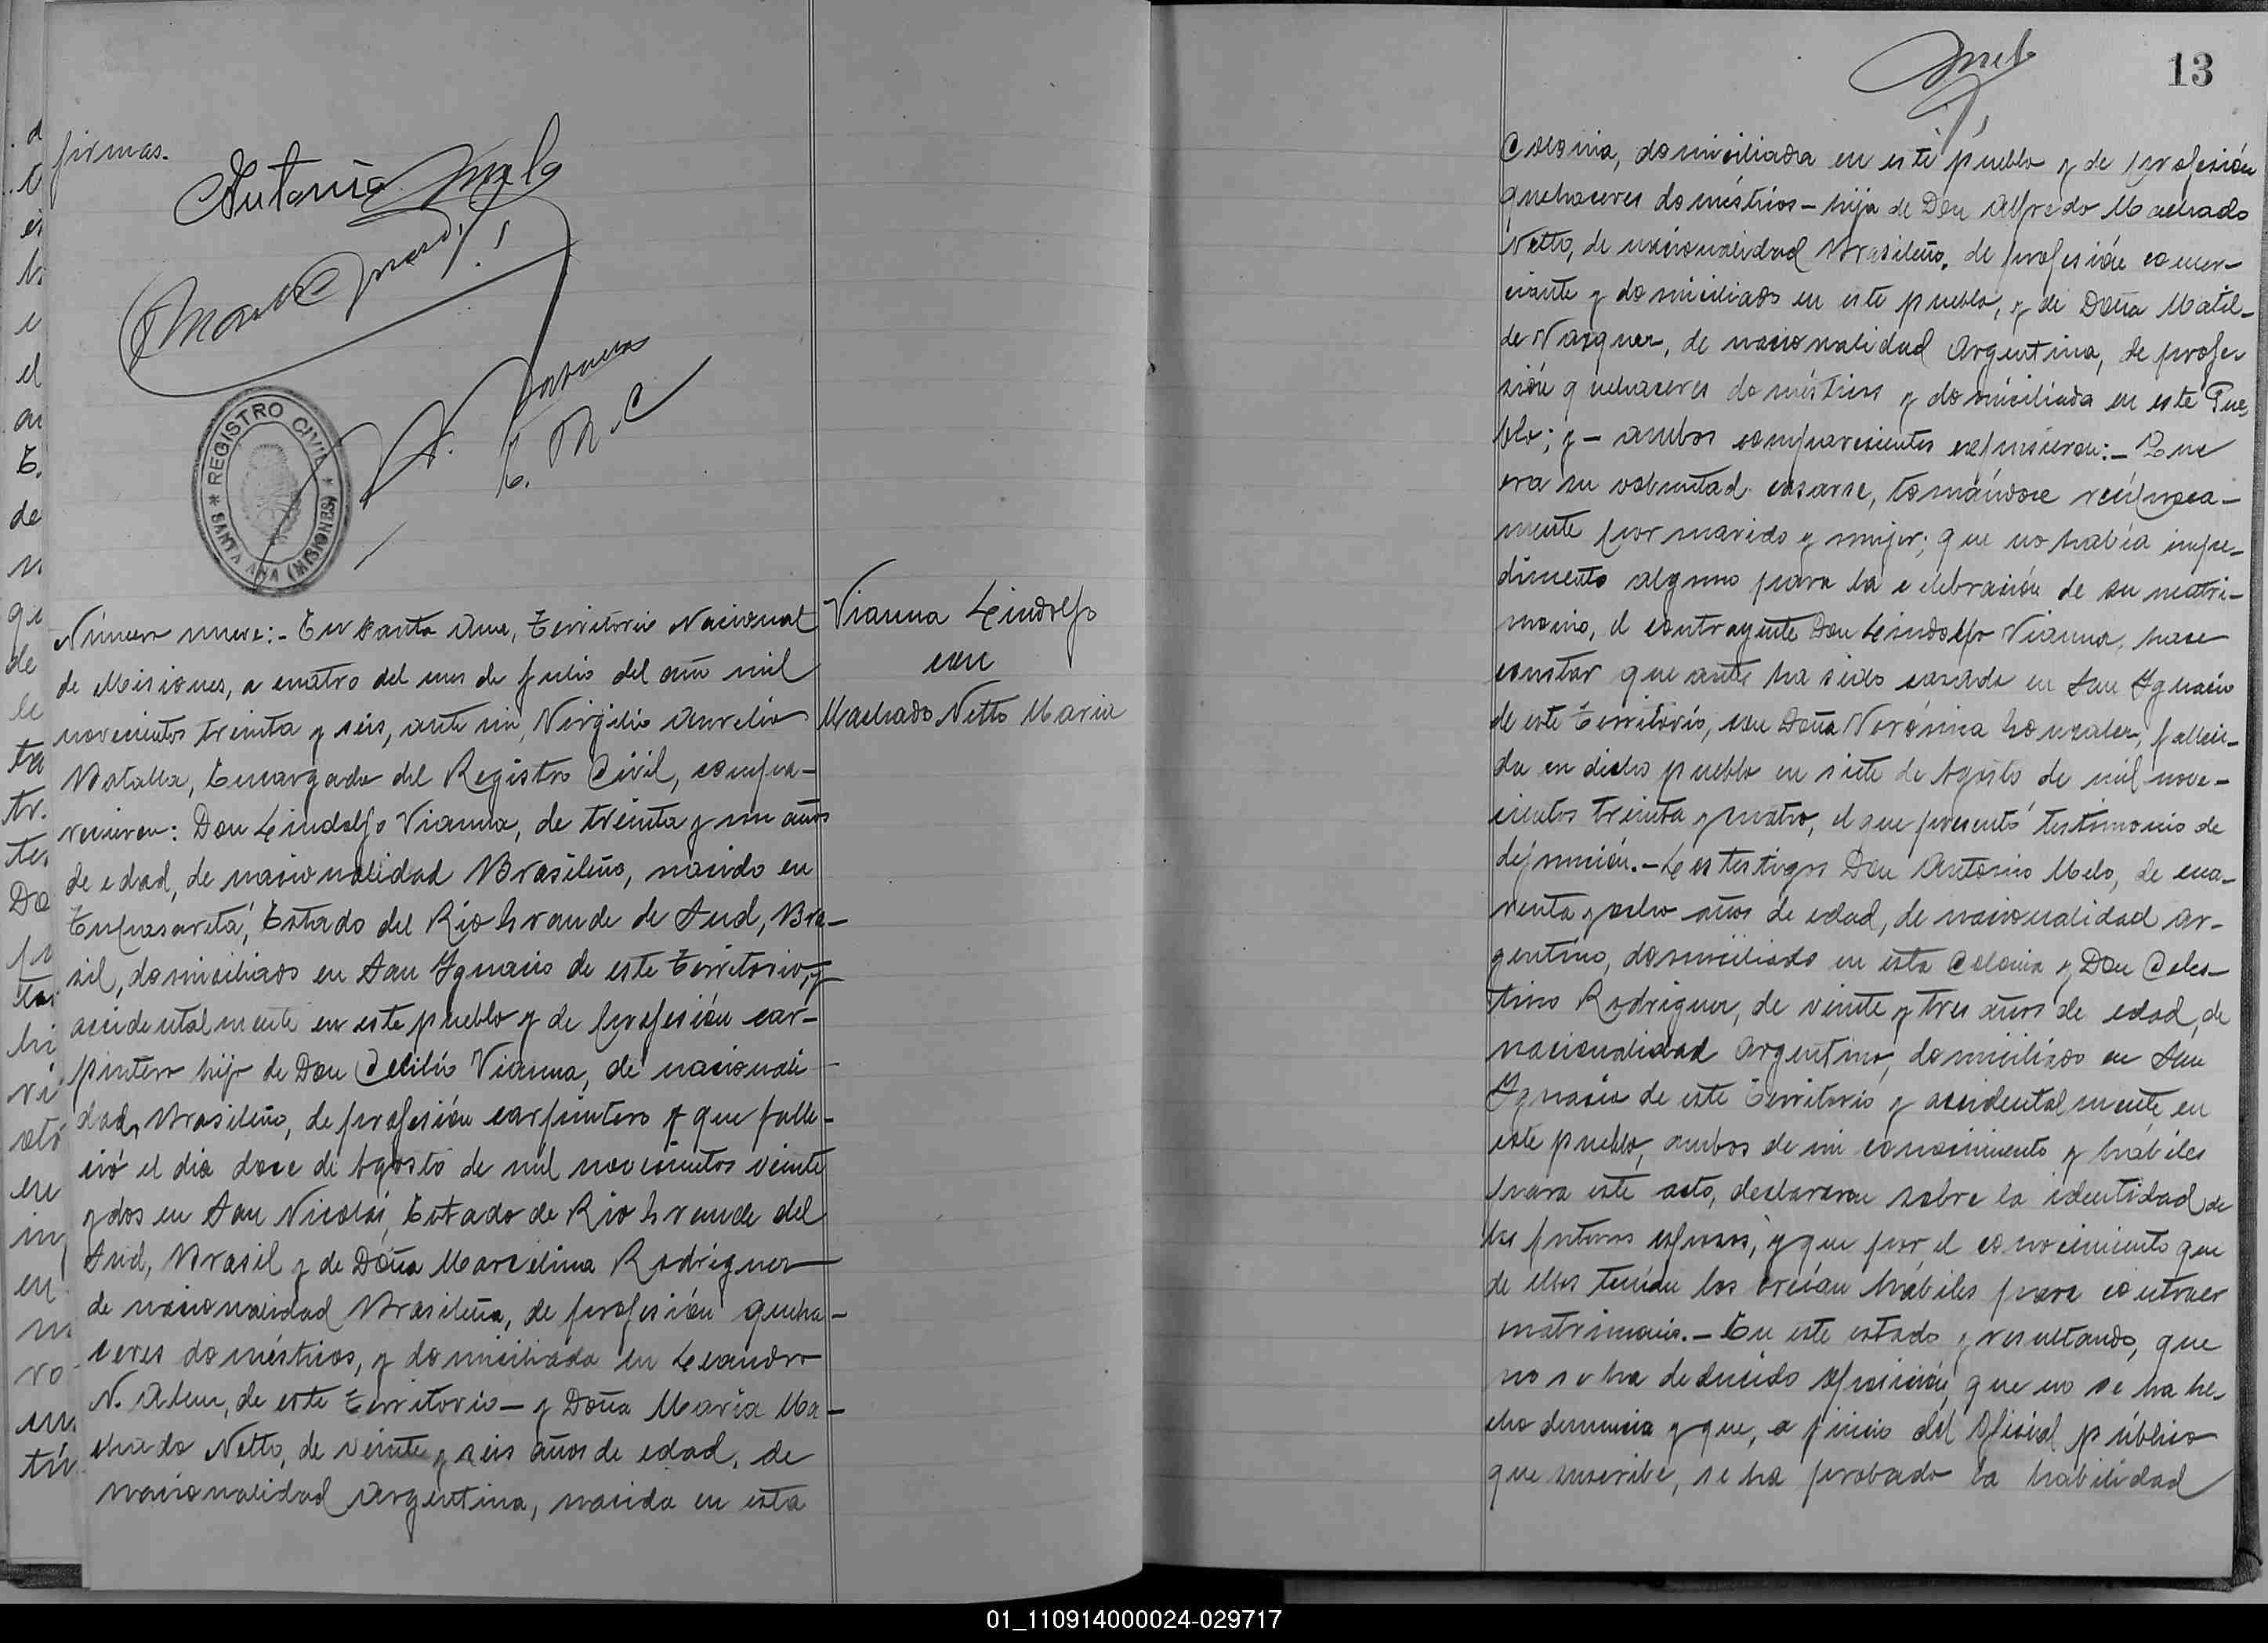 firmas.
Antonio Melo
REGISTRO CIVIL
SANTA ANA (MISIONES)
E. R. C
Número nueve:- En Santa Ana, Territorio Nacional
de Misiones, a cuatro del mes de Julio del año mil
novecientos treinta y seis, ante mi, Virgilio Aurelio
Matalla, Encargado del Registro Civil, compa-
recieron: Don Lindolfo Vianna, de treinta y un años
de edad, de nacionalidad Brasileño, nacido en
Estado del Rio Grande de Sud, Bra-
sil, domiciliado en San Ignacio de este Territorio, y
accidentalmente en este pueblo y de profesión car-
pintero hijo de Don Cecilio Vianna, de nacionali-
dad, Brasileño, de profesión carpintero y que falle-
ció el dia doce de Agosto de mil novecientos veinte
y dos en San Nicolás, Estado de Rio Grande del
Sud, Brasil y de Doña Marcelina Rodriguez
de nacionalidad Brasileña, de profesión queha-
ceres domésticos, y domiciliada en Leandro
N. Alem, de este Territorio - y Doña Maria Ma-
chado Netto, de veinte y seis años de edad, de
nacionalidad Argentina, nacida en esta
Vianna Lindolfo
con
Machado Netto Maria
Melo
13
Colonia, domiciliada en este pueblo y de profesión
quehaceres doméstios - hija de Don Alfredo Machado
Netto, de nacionalidad Brasileño, de profesión comer-
ciante y domiciliado en este pueblo, y de Doña Matil-
de Vazquez, de nacionalidad Argentina, de profe
sión quehaceres doméstios y domiciliada en este Pue
blo; y - ambos comparecientes expusieron:- Que
era su voluntad casarse, tomándose recíproca-
mente por marido y mujer; que no había impe-
dimento alguno para la celebración de su matri-
monio, el contrayente Don Lindolfo Vianna, hace
constar que antes ha sido casado en San Ignacio
de este Territorio, con Doña Verónica Gonzalez, falleci-
da en dicho pueblo en siete de Agosto de mil nove-
cientos treinta y cuatro, el que presentó testimonio de
defunción.- Los testigos Don Antonio Melo, de cua-
renta y ocho años de edad, de nacionalidad Ar-
gentino, domiciliado en esta Colonia y Don Celes-
tino Rodriguez, de veinte y tres años de edad, de
nacionalidad Argentino, domiciliado en San
Ignacio de este Territorio y accidentalmente en
este pueblo, ambos de mi conocimiento y hábiles
para este acto, declararon sobre la identidad de
los futuros esposos, y que por el conocimiento que
de ellos tenían los creían hábiles para contraer
matrimonio.- En este estado y resultando, que
no se ha deducido oposición, que no se ha he-
cho denuncia y que, a juicio del Oficial público
que suscribe, se ha probado la habilidad
01_110914000024-029717